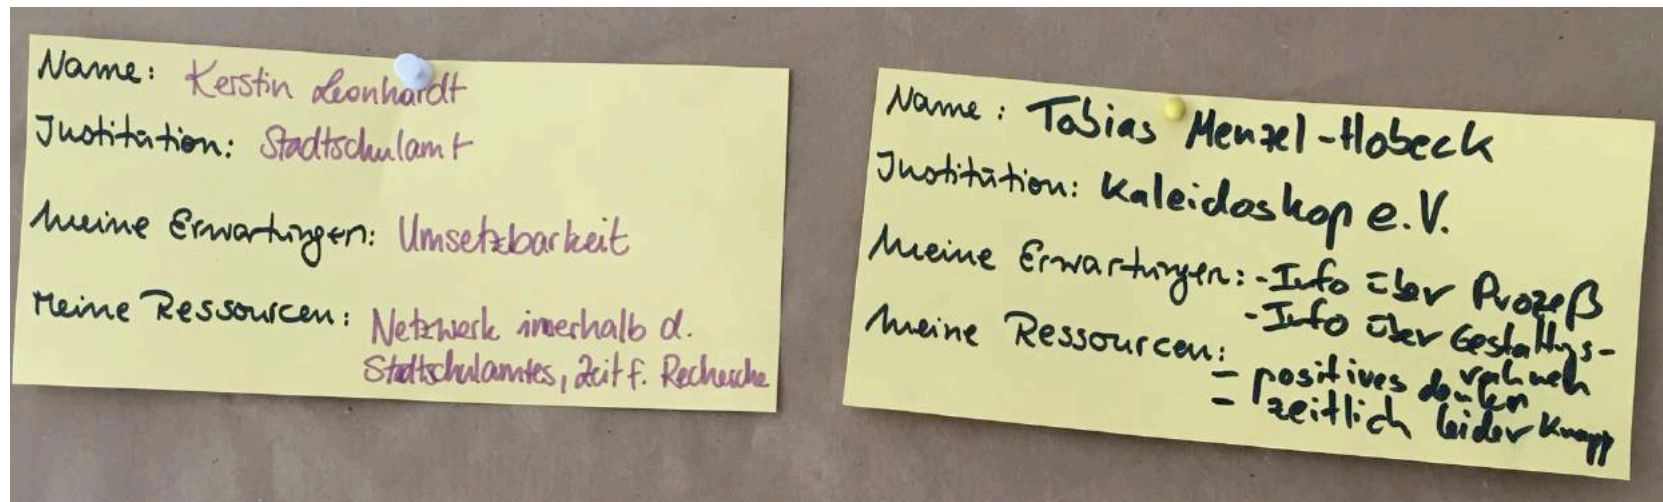 Name: Kerstin Leonhardt
Institution: Stadtschulamt
Meine Erwartungen: Umsetzbarkeit
Meine Ressourcen: Netzwerk innerhalb d.
Stadtschulamtes, Zeit f. Recherche
Name: Tobias Menzel-Hobeck
Institution: Kaleidoskop e.V.
Meine Erwartungen: - Info über Prozeß
- Info über Gestaltungs-
rahmen
Meine Ressourcen:
- positives denken
- zeitlich leider knapp